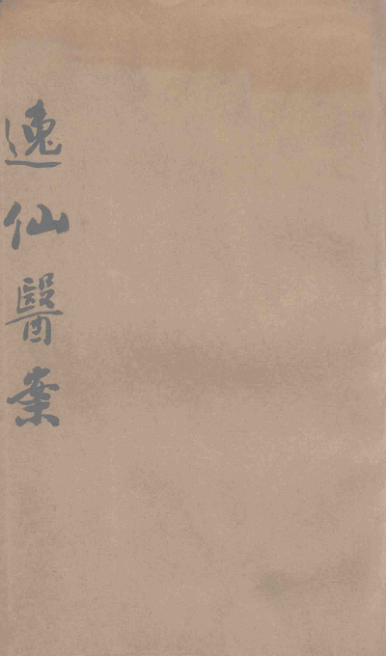 逸仙醫案